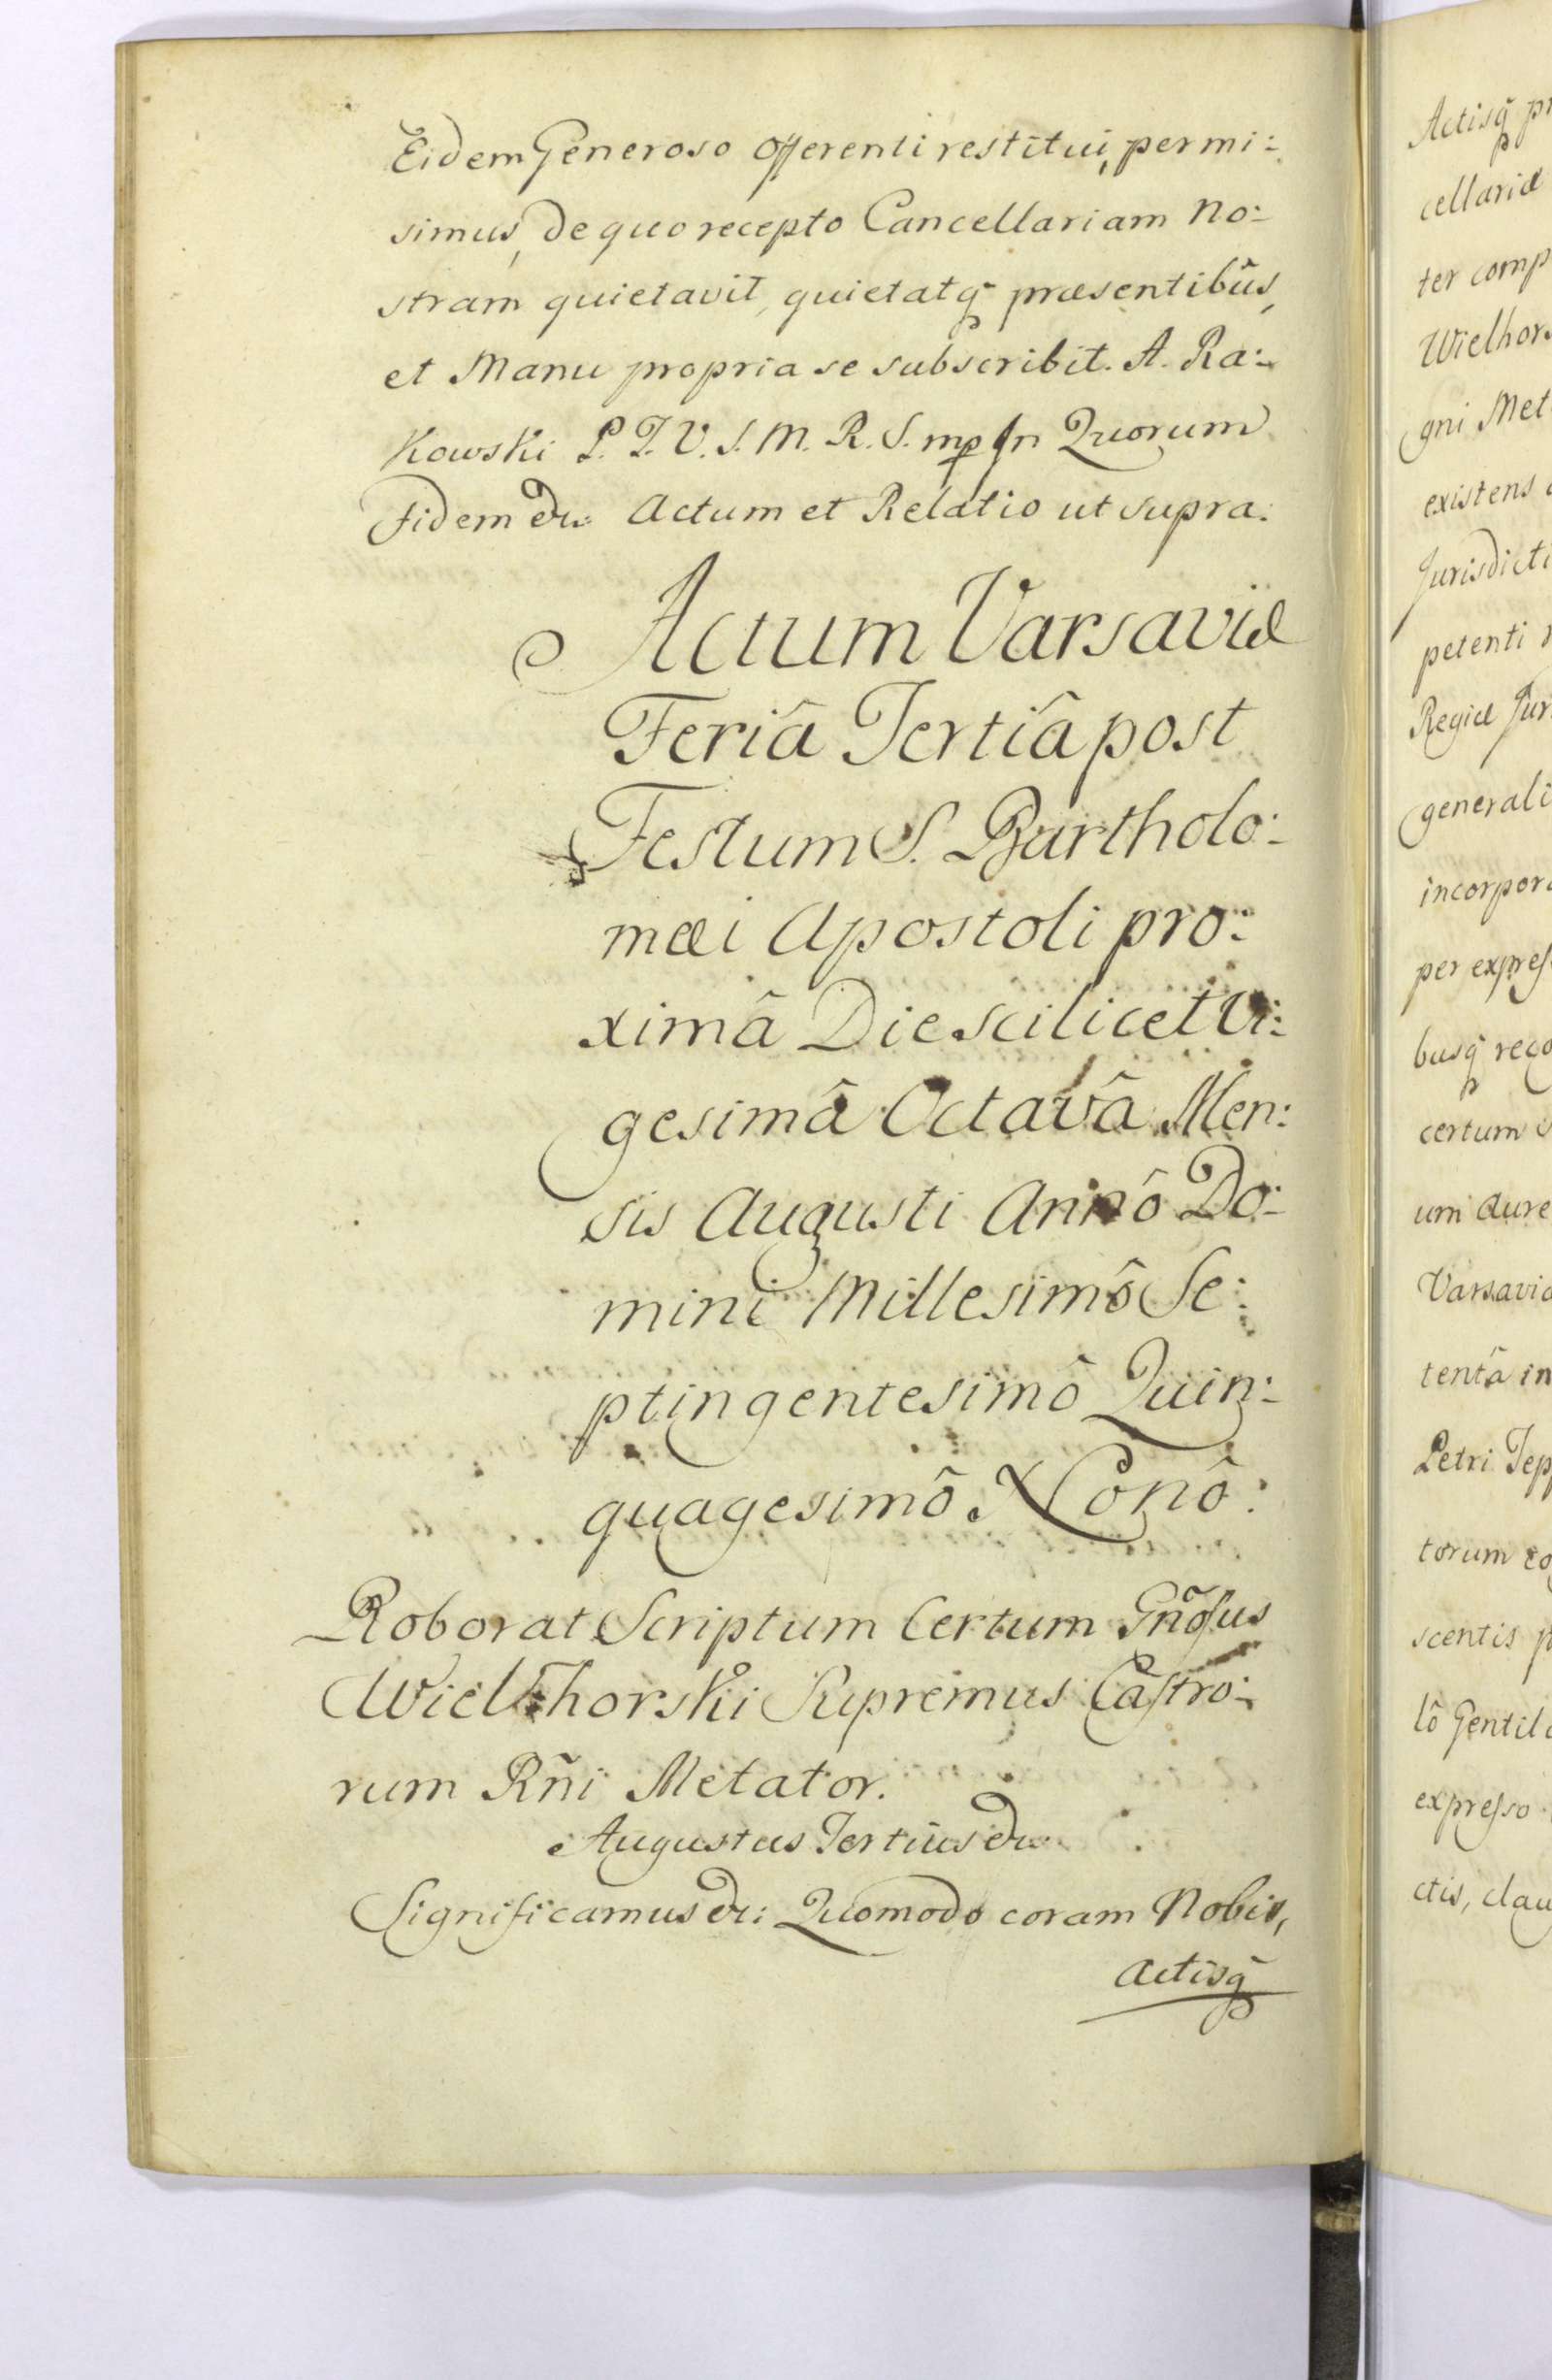 Eidem Generoso Offerenti restitui, permi:
simus, de quo recepto Cancellariam No:
stram quietavit, quietatq̃ præsentibûs,
et Manu propria se subscribit. A. Ra:
Kowski P. T. V. S. M. R. S. mp In Quorum
Fidem &c. Actum et Relatio ut supra.
Actum Varsaviæ
Feriâ Tertiâ post
Festum S. Bartholo:
mæi Apostoli pro:
ximâ Die scilicet Vi:
gesimâ Octavâ Men:
sis Augusti Annô Do:
mini Millesimô Se:
ptingentesimô Quin:
quagesimô Nonô:
Roborat Scriptum Certum Gñosus
Wielhorski Supremus Castro:
rum Rñi Metator.
Augustus Tertius &c.
Significamus &c: Quomodo coram Nobis,
actisq̃
Actisq̃
cellariæ
ter comp
Wielhor
gni Met
existens
Jurisdicti
petenti
Regiæ Jur
generali
incorpor
per expres
busq̃ reco
certum
um aure
Varsavia
tentâ in
Petri Tep
torum
scentis
lô Gentil
expresso
ctis, clau